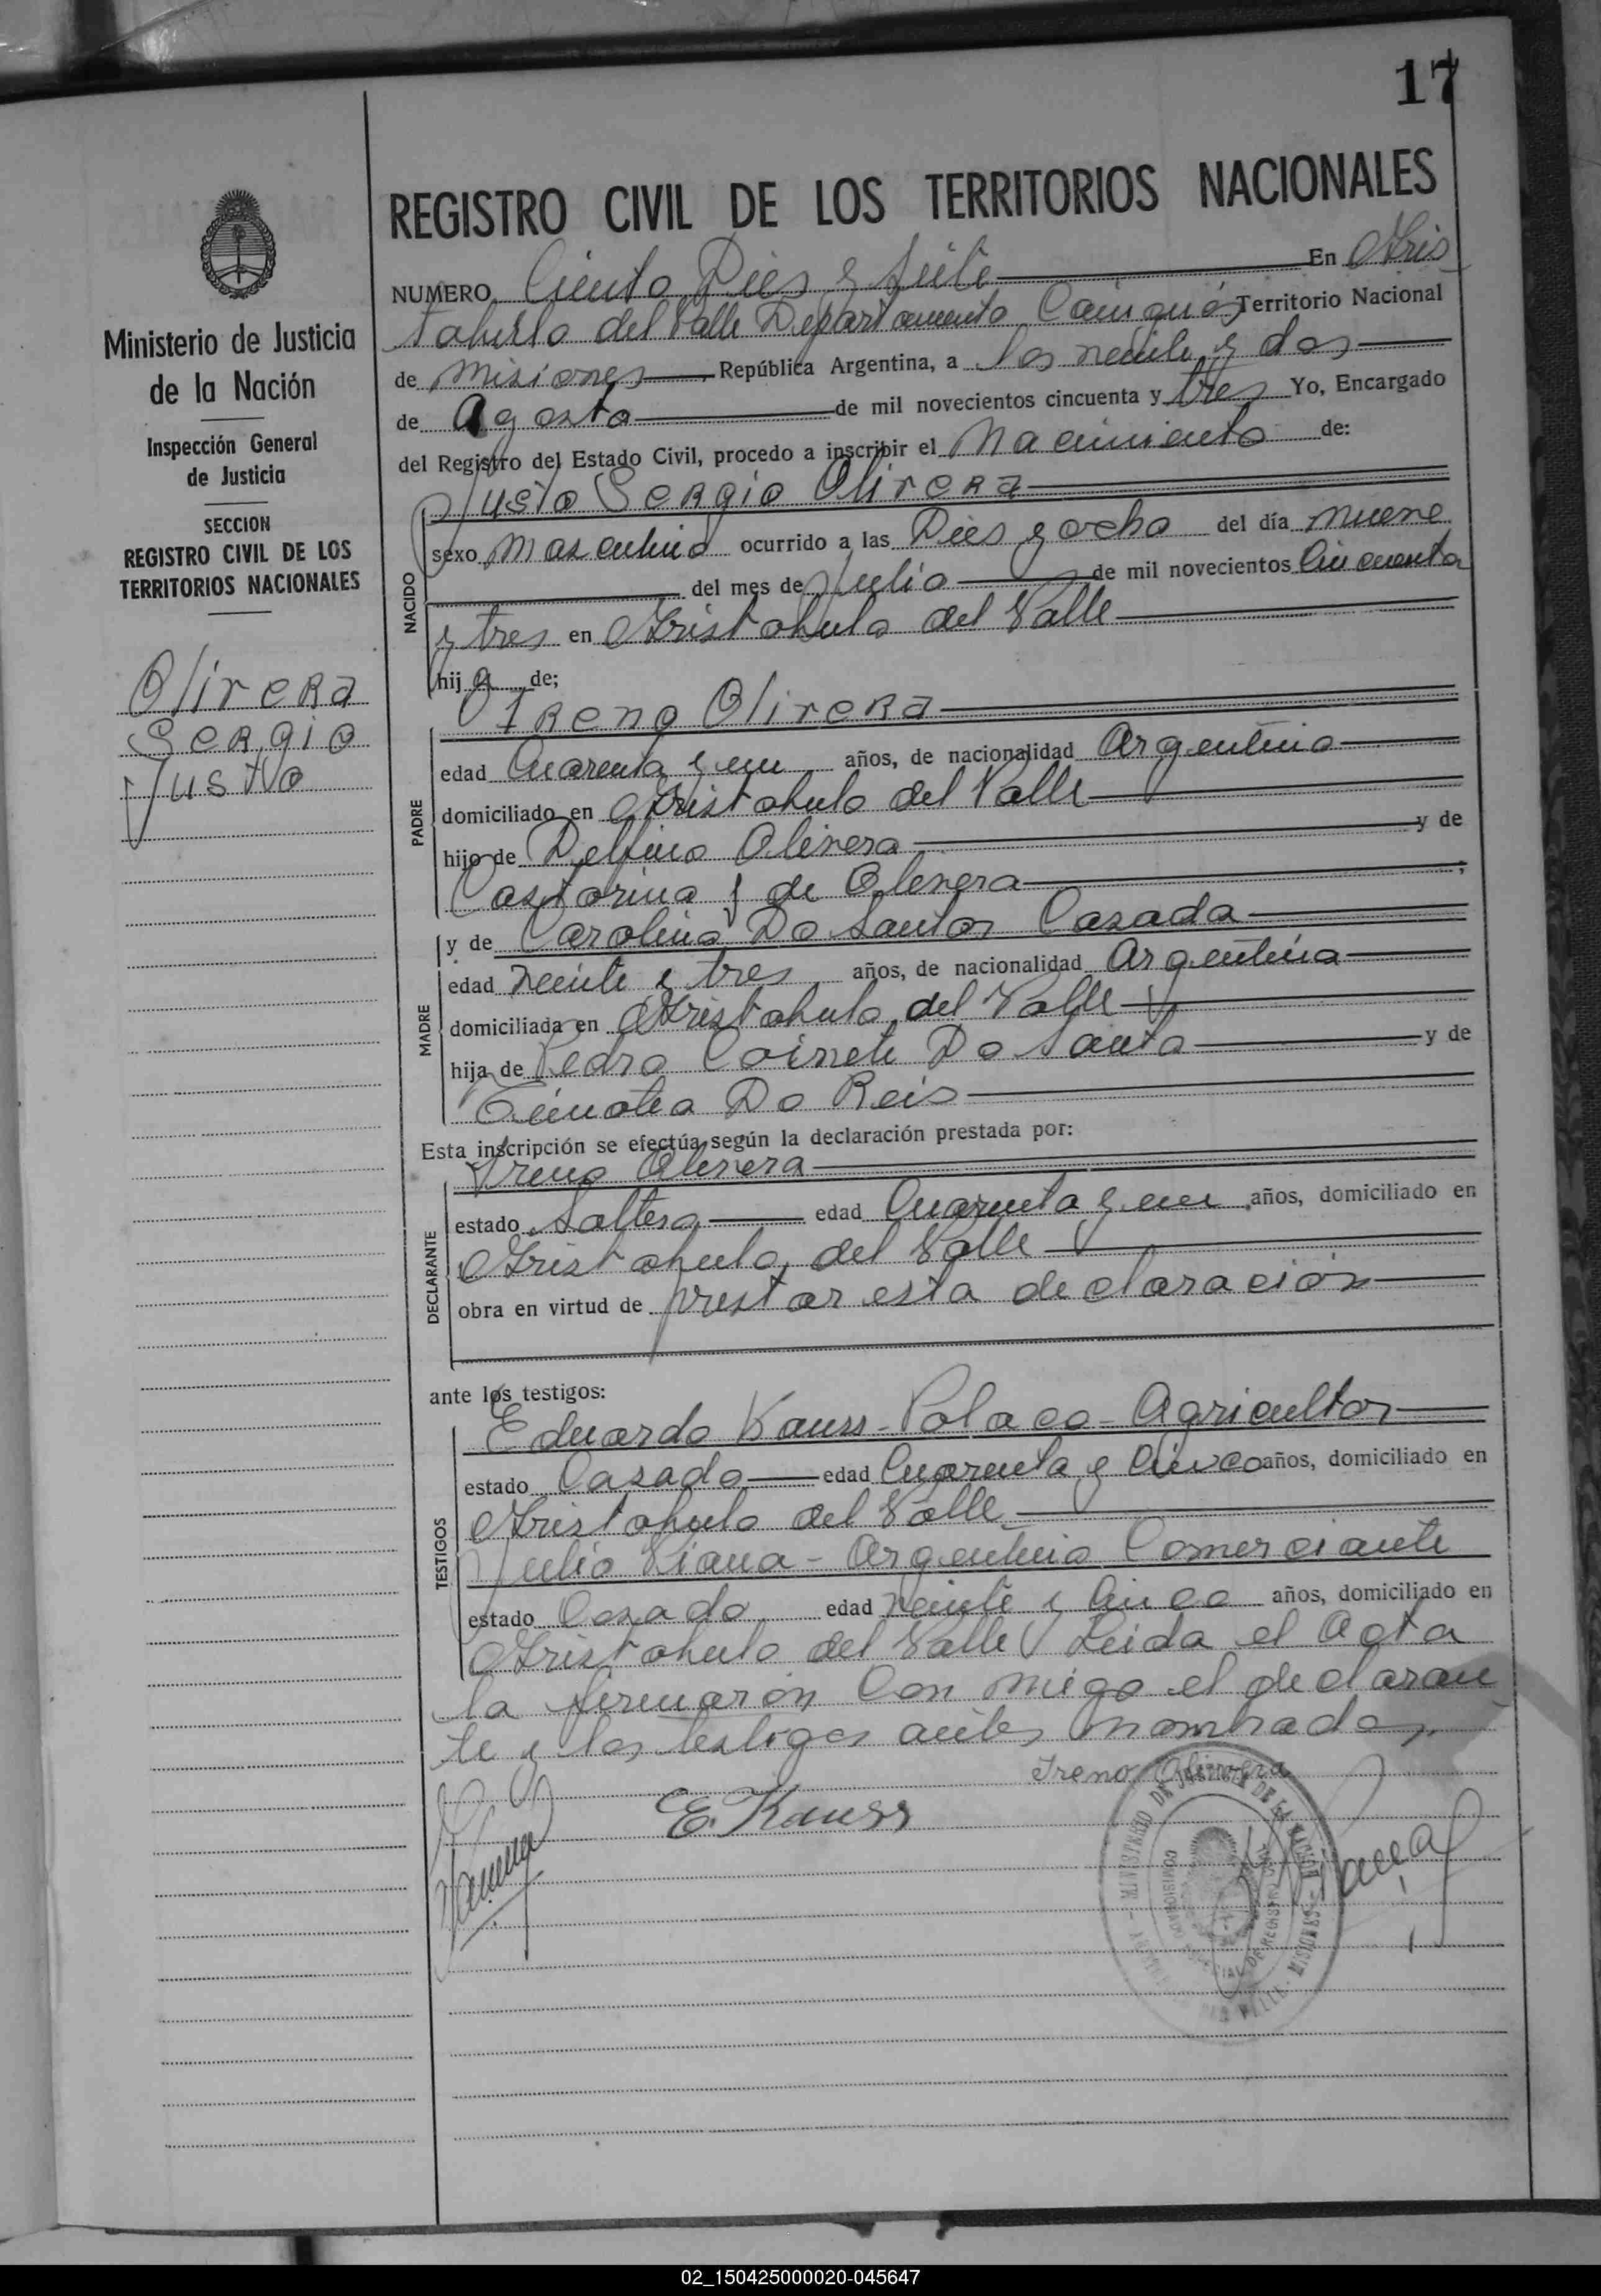 17
REGISTRO CIVIL DE LOS TERRITORIOS NACIONALES
NUMERO Ciento Dies y Seite En Aris
tobulo del Valle Departamento Cainguás Territorio Nacional
de Misiones, República Argentina, a los veinte y dos
de Agosto de mil novecientos cincuenta y tres Yo, Encargado
del Registro del Estado Civil, procedo a inscribir el Nacimiento de:
Justo Sergio Olivera
NACIDO
sexo Masculino ocurrido a las Dies y ocho del día nueve
del mes de Julio de mil novecientos Cincuenta
y tres en Aristobulo del Valle
hijo de;
Ireno Olivera
PADRE
edad Cuarenta y un años, de nacionalidad Argentino
domiciliado en Aristobulo del Valle
hijo de Delfino Olivera y de
Castorina J de Olivera;
MADRE
y de Carolina Do Santos Casada
edad veinte y tres años, de nacionalidad Argentina
domiciliada en Aristobulo del Valle
hija de Pedro Do Santo y de
Do Reis
Esta inscripción se efectúa según la declaración prestada por:
Ireno Olivera
DECLARANTE
estado Soltero edad Cuarenta y un años, domiciliado en
Aristobulo del Valle
obra en virtud de prestar esta declaración
ante los testigos:
TESTIGOS
Eduardo Kauss - Polaco - Agricultor
estado Casado edad Cuarenta y Cinco años, domiciliado en
Aristobulo del Valle
Julio Viana - Argentino Comerciante
estado Casado edad Veinte y Cinco años, domiciliado en
Aristobulo del Valle Leida el Acta
la firmarón Con migo el declaran
te y los testigos antes nombrados
Ireno Olivera
E. Kauss
MINISTERIO DE JUSTICIA DE LA NACION
MISIONES
Ministerio de Justicia
de la Nación
Inspección General
de Justicia
SECCION
REGISTRO CIVIL DE LOS
TERRITORIOS NACIONALES
Olivera
Sergio
Justo
02_150425000020-045647